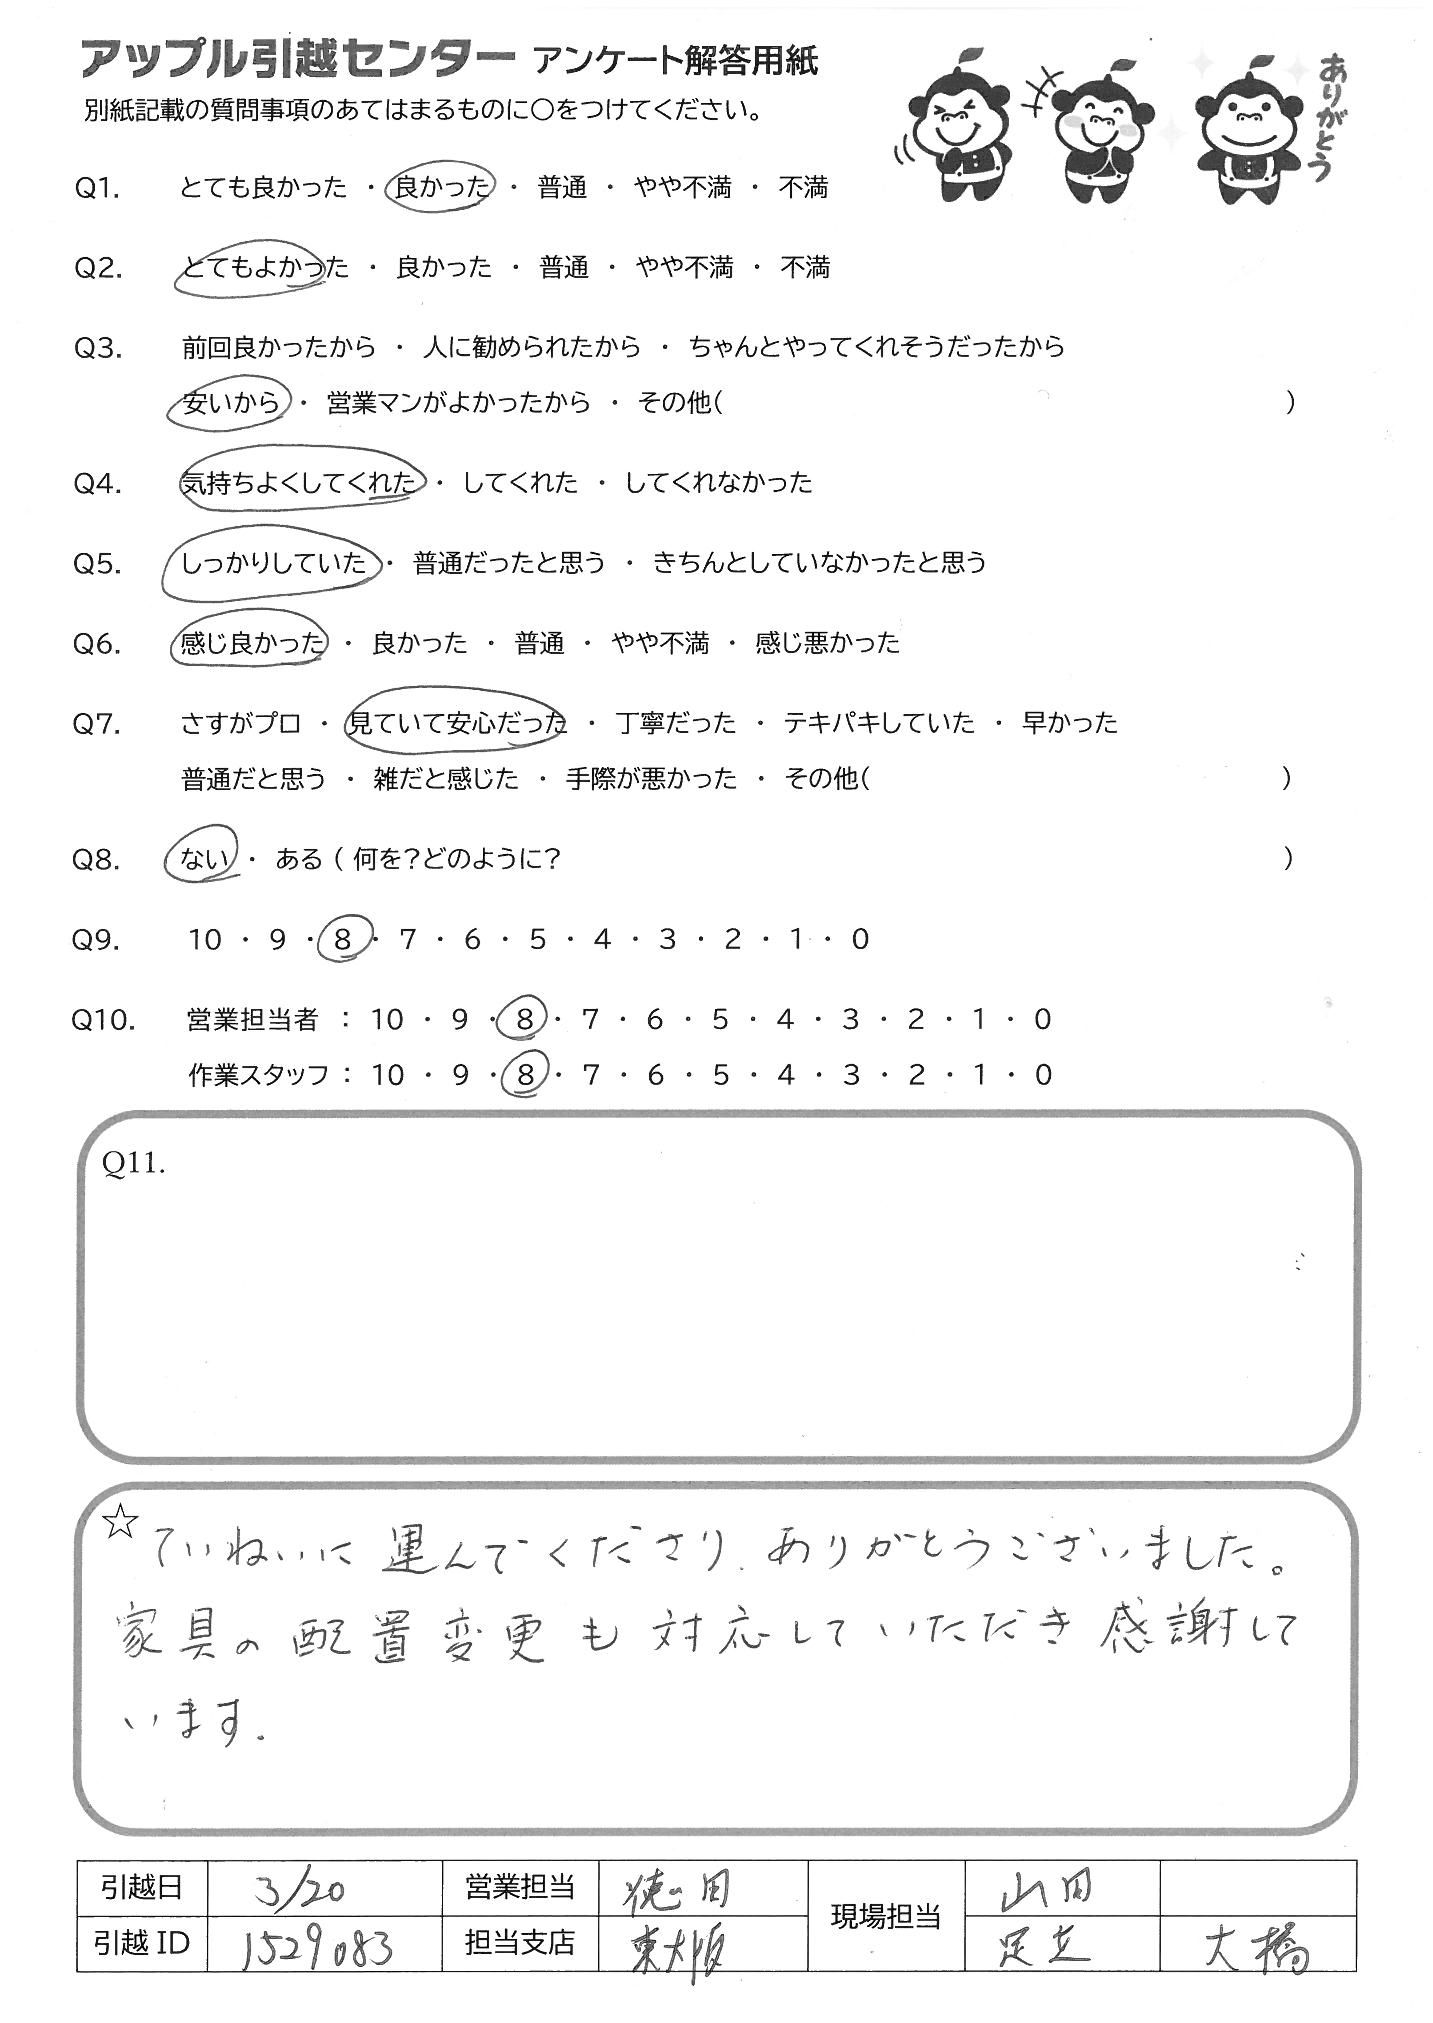 アップル引越センター アンケート解答用紙
ありがとう
別紙記載の質問事項のあてはまるものに○をつけてください。
Q1. とても良かった ・ 良かった ・ 普通 ・ やや不満 ・ 不満
Q2. とてもよかった ・ 良かった ・ 普通 ・ やや不満 ・ 不満
Q3. 前回良かったから ・ 人に勧められたから ・ ちゃんとやってくれそうだったから
安いから ・ 営業マンがよかったから ・ その他( )
Q4. 気持ちよくしてくれた ・ してくれた ・ してくれなかった
Q5. しっかりしていた ・ 普通だったと思う ・ きちんとしていなかったと思う
Q6. 感じ良かった ・ 良かった ・ 普通 ・ やや不満 ・ 感じ悪かった
Q7. さすがプロ ・ 見ていて安心だった ・ 丁寧だった ・ テキパキしていた ・ 早かった
普通だと思う ・ 雑だと感じた ・ 手際が悪かった ・ その他( )
Q8. ない ・ ある ( 何を?どのように? )
Q9. 10 ・ 9 ・ 8 ・ 7 ・ 6 ・ 5 ・ 4 ・ 3 ・ 2 ・ 1 ・ 0
Q10. 営業担当者 : 10 ・ 9 ・ 8 ・ 7 ・ 6 ・ 5 ・ 4 ・ 3 ・ 2 ・ 1 ・ 0
作業スタッフ : 10 ・ 9 ・ 8 ・ 7 ・ 6 ・ 5 ・ 4 ・ 3 ・ 2 ・ 1 ・ 0
Q11.
☆ ていねいに運んでくださり、ありがとうございました。
家具の配置変更も対応していただき感謝して
います.
引越日 3/20 営業担当 徳田 現場担当 山田
引越ID 1529083 担当支店 東大阪 足立 大橋